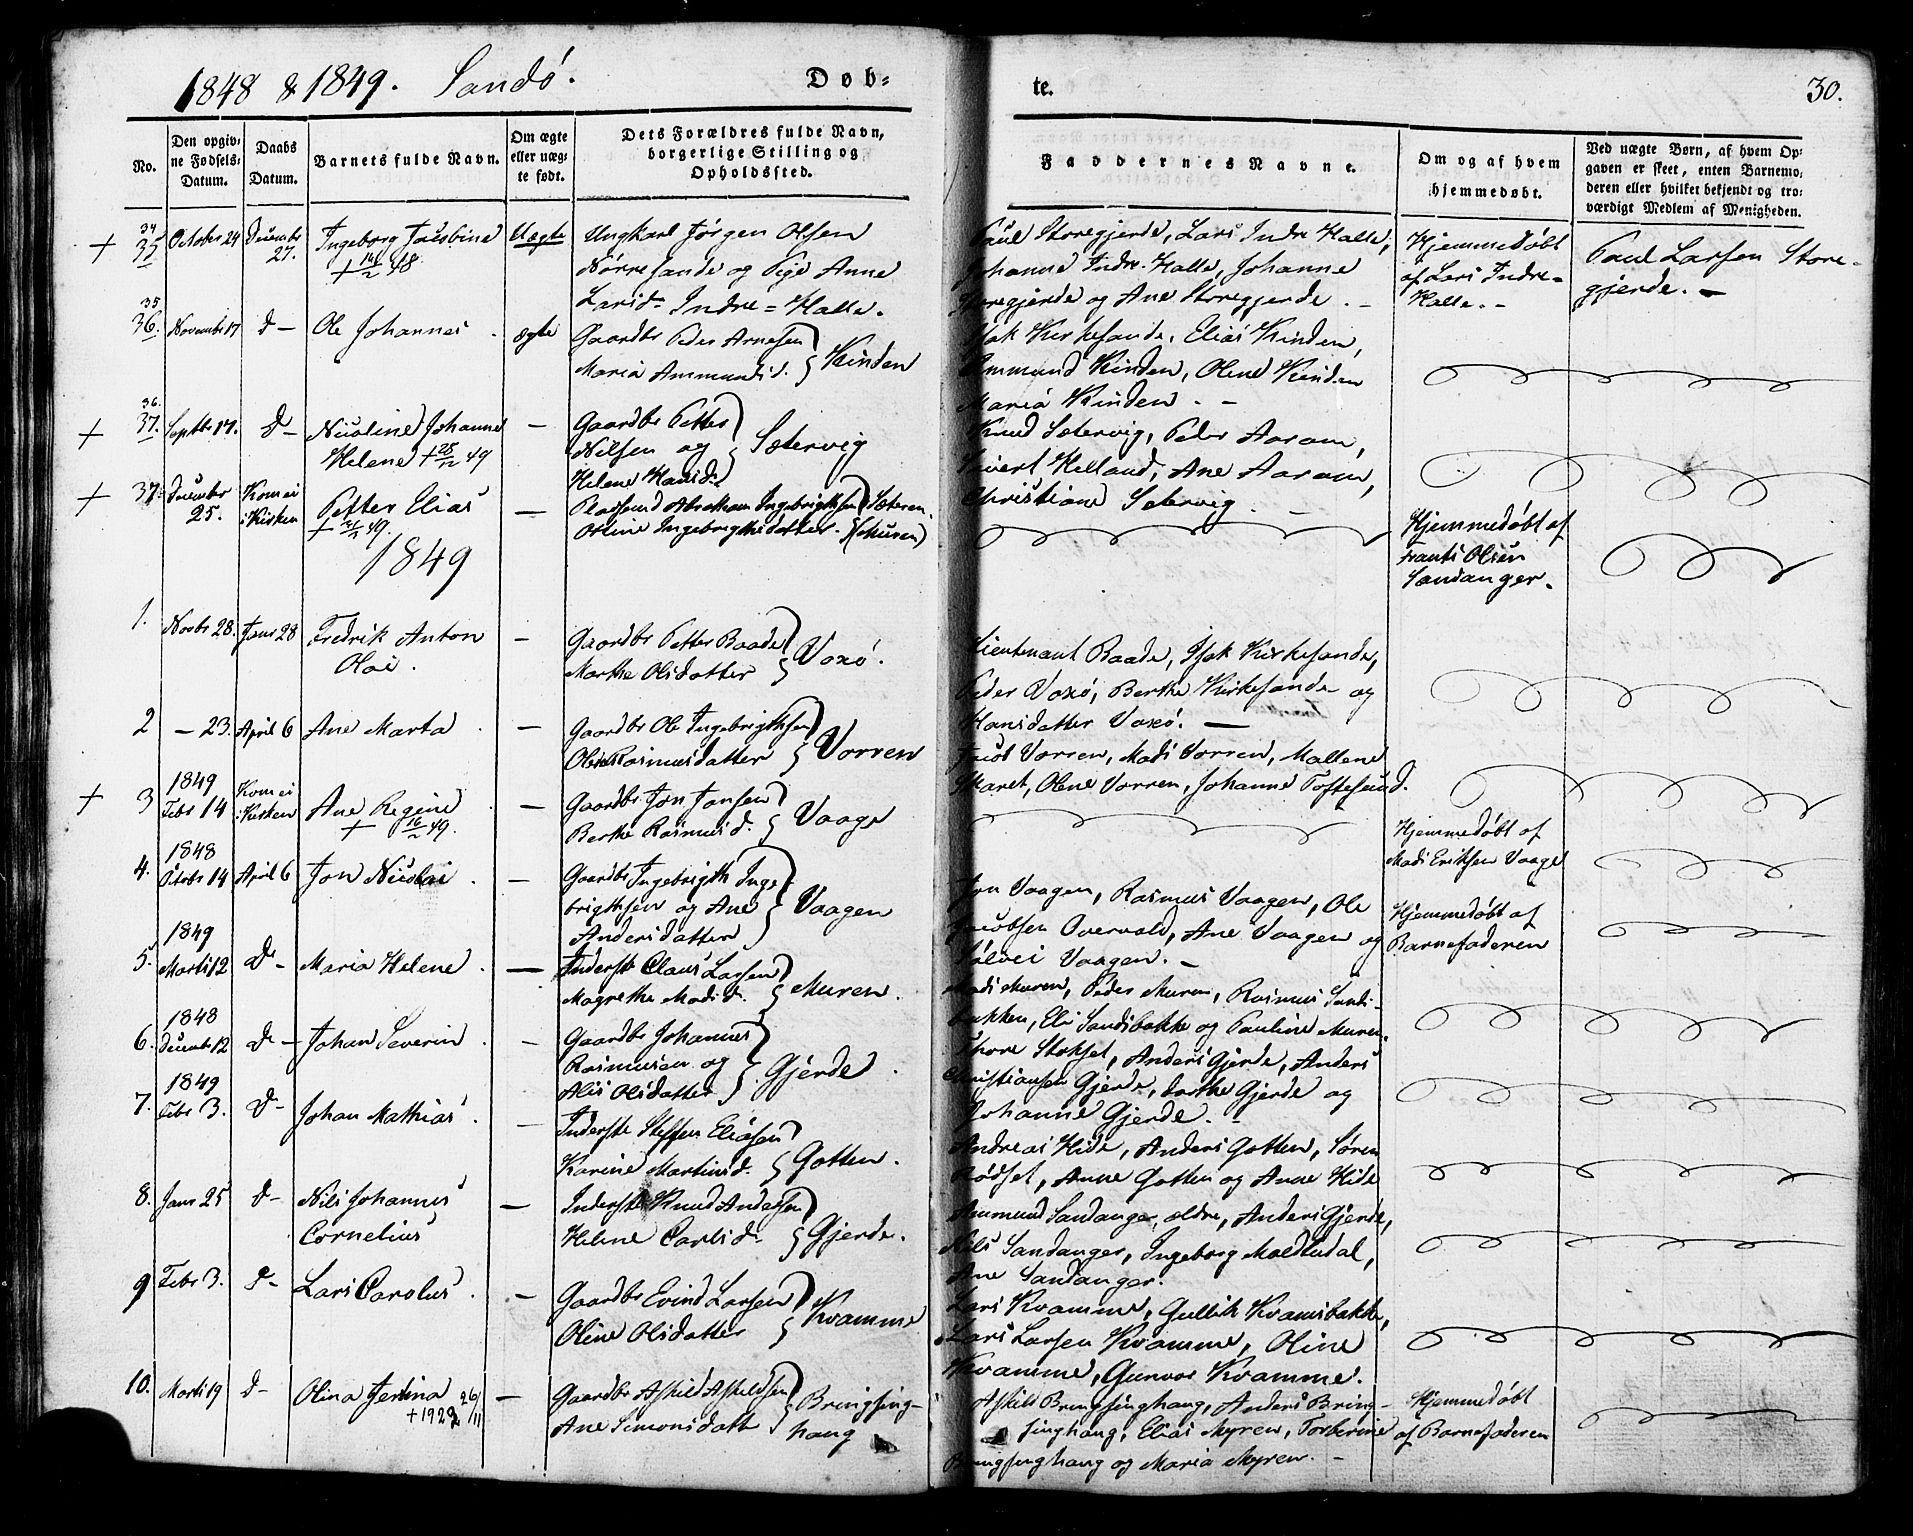 1848 & 1849. Sandö.
Døb-
te.
30.
No.
Den opgiv-
ne Fødsels-
Datum.
Daabs
Datum.
Barnets fulde Navn.
Om ægte
eller uæg-
te født.
Dets Forældres fulde Navn,
borgerlige Stilling og
Opholdssted.
Faddernes Navne.
Om og af hvem
hjemmedøbt.
Ved uægte Børn, af hvem Op-
gaven er skeet, enten Barnemo-
deren eller hvilket bekjendt og tro-
værdigt Medlem af Menigheden.
34
35 October 24 December 27. Ingeborg Uægte Ungkarl Jörgen Olsen
+ 48.
Nörresande og Pige Anne
Larsd. Indre-Halle.
Paul Storegjerde, Lars Indre Halle,
Johanne Indre-Halle, Johanne
Storegjerde og Ane Storegjerde. -
Hjemmedöbt
af Lars Indre-
Halle. -
Paul Larsen Store-
gjerde. -
35
36. November 17 d- Ole Johannes. ægte Gaardbr Peder Arnesen
Maria Ammundsd. } Kinden
Isak Kirkesande, Elias Kinden,
Ammund Kinden, Olene Kinden
Maria Kinden. -
36.
37. Septbr 17. d- Nicoline Johanne - Gaardbr Petter
Helene + 49
Nilsen og } Sætervig
Helene Hansd.
Knud Sætervig, Peder Aaram,
Sivert Helland, Ane Aaram,
Christiane Sætervig. -
37. December 25. Kom ei i Kirken Petter Elias - Pladsmd Abraham Ingebrigthsen } Sæteren
+ 49.
Oline Ingebrigthsdatter.
Hjemmedöbt af
Frants Olsen
Sandanger.
1849
1. Novbr 28. Janr 28 Fredrik Anton - Gaardbr Petter Baade
Olai.
Marthe Olsdatter } Voxö.
Lieutenant Baade, Isak Kirkesande,
Peder Voxö, Berthe Kirkesande og
Hansdatter Voxö. -
2 - 23. April 6 Ane Marta. - Gaardbr Ole Ingebrigthsen
Rasmusdatter } Vorren
Jacob Vorren, Mads Vorren, Mallene
Skaret, Olene Vorren, Johanne Toftesund.
1849
3 Febr 14 Kom ei i Kirken Ane Regine - Gaardbr Jon Jonsen
+ 16/2 49.
Berthe Rasmusd. } Vaage
Hjemmedöbt af
Mads Eriksen Vaage
1848
4. Octobr 14 April 6 Jon Nicolai. - Gaardbr Ingebrigth Inge-
brigthsen og Ane } Vaagen
Andersdatter
Jon Vaagen, Rasmus Vaagen, Ole
Jacobsen Overvold, Ane Vaagen og
Sölvei Vaagen. -
Hjemmedöbt af
Barnefaderen
1849
5. Marts 12 d- Maria Helene. - Inderste Claus Larsen
Magrethe Madsd. } Muren.
Mads Muren, Peder Muren, Rasmus Sands-
bakken, Eli Sandsbakke og Pauline Muren.
1848
6. Decembr 12 d- Johan Severin. - Gaardbr Johannes
Rasmusen og } Gjerde.
Alis Olsdatter
Thore Stokset, Anders Gjerde, Anders
Christiansen Gjerde, Dorthe Gjerde og
Johanne Gjerde. -
1849
7. Febr 3. d- Johan Mathias. - Inderste Steffen Eliasen
Karine Martinsd. } Gotten.
Andreas Hide, Anders Gotten, Sören
Rödset, Anne Gotten og Anne Hide
8. Janr 25 d- Nils Johannes - Inderste Knud Andersen
Cornelius
Helene Carlsd. } Gjerde.
Ammund Sandanger, ældre, Anders Gjerde,
Nils Sandanger, Ingeborg
Ane Sandanger.
9 Febr 3. d- Lars Carolus. - Gaardbr Evind Larsen
Oline Olsdatter } Kvamme
Lars Kvamme, Gullik Kvamsbakke,
Lars Larsen Kvamme, Oline
Kvamme, Gunvor Kvamme.
10. Marts 19 d- Olina - Gaardbr Askild Askildsen
+ 1922 26/11
Ane Simonsdatt } Bringsing-
haug
Askild Bringsinghaug, Anders Bring-
singhaug, Elias Myren, Torberine
Bringsinghaug og Maria Myren. -
Hjemmedöbt
af Barnefaderen